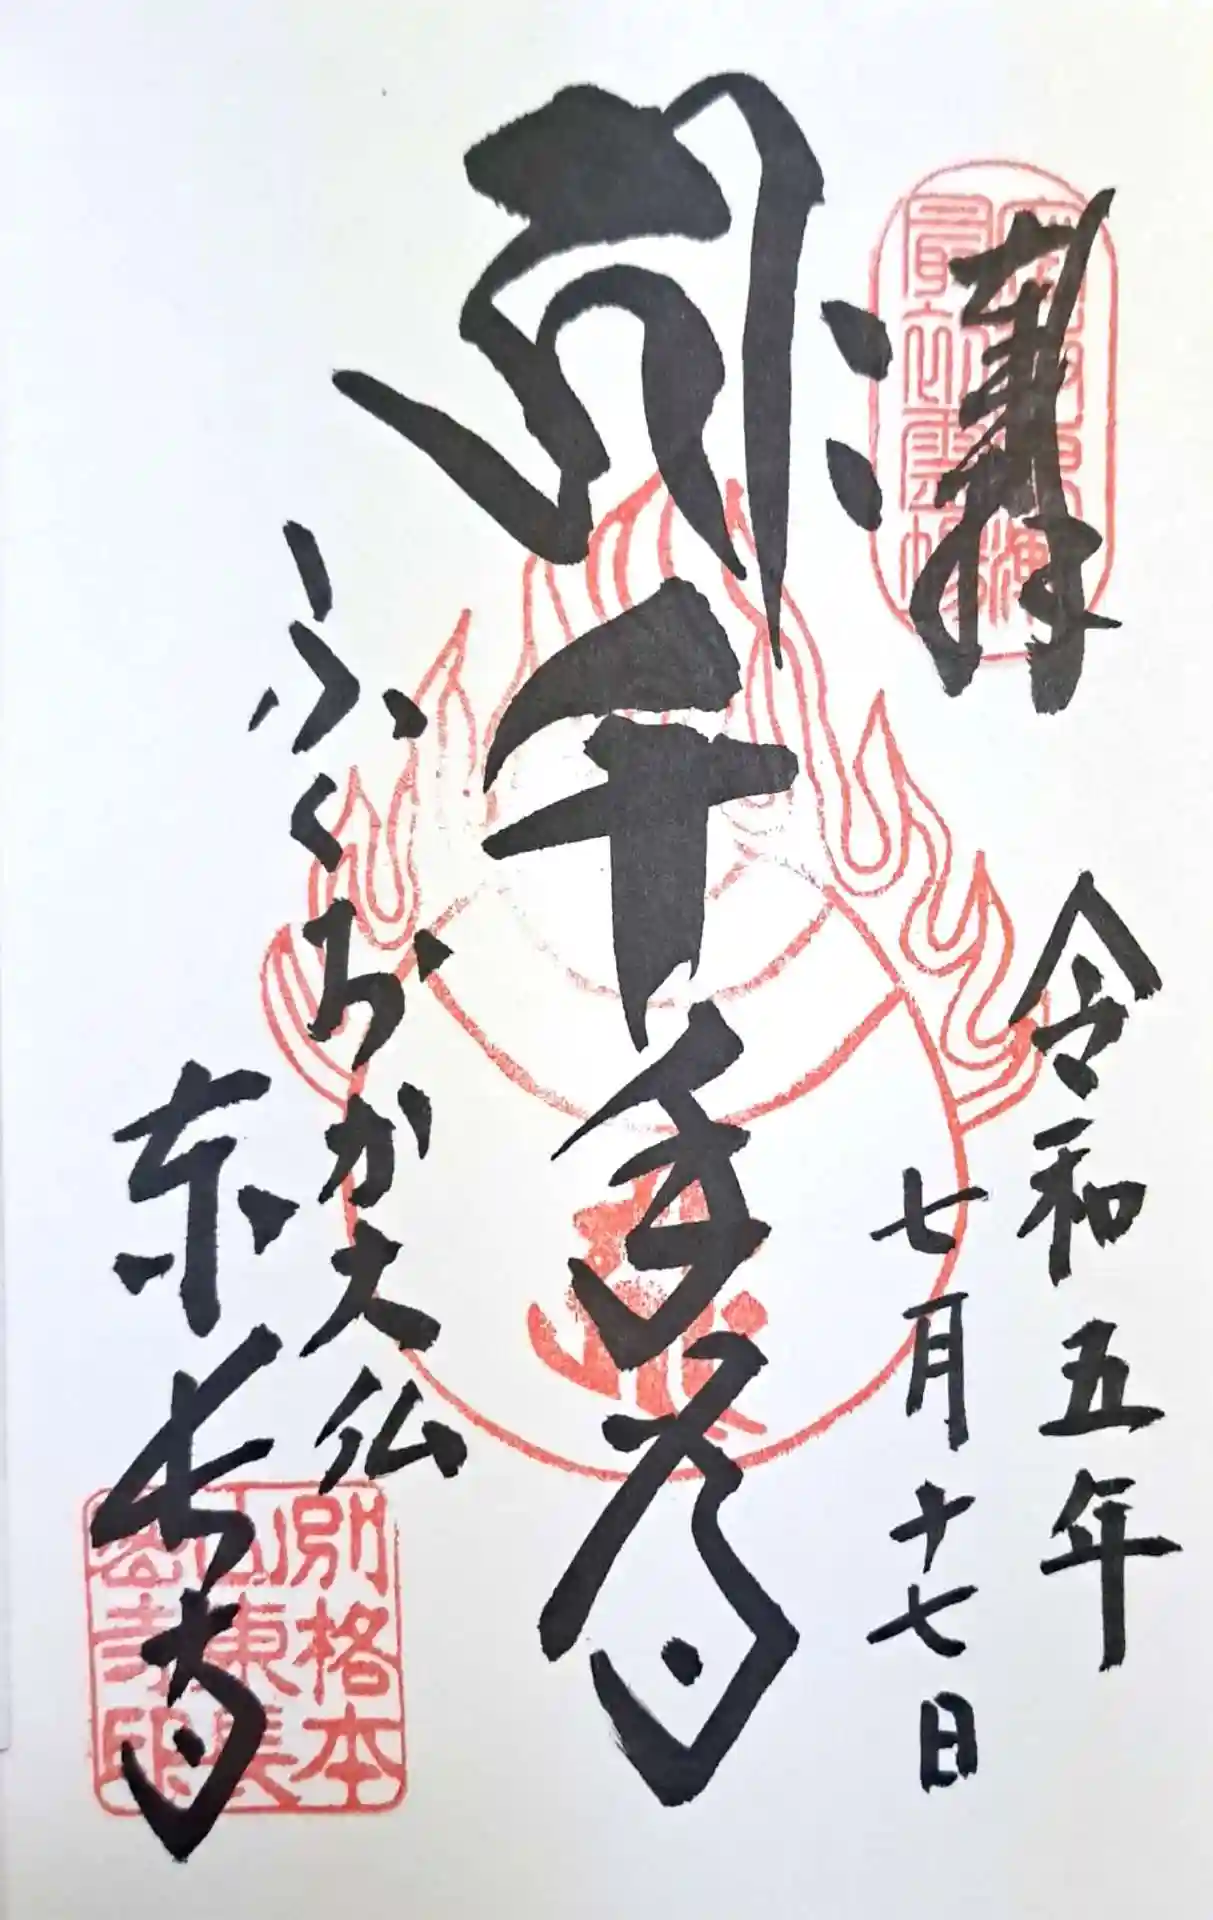 奉拝
令和五年
七月十七日
ह्रीः千手尊
ふくおか大仏
東長寺
別格本
山東長
密寺印